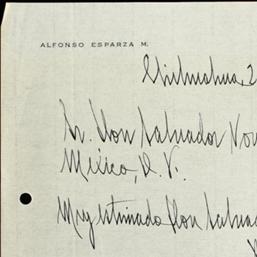 ALFONSO ESPARZA M.
Chihuahua, 2
Sr. Don Salvador Nov
México, D. F.
Muy estimado Don Salvad